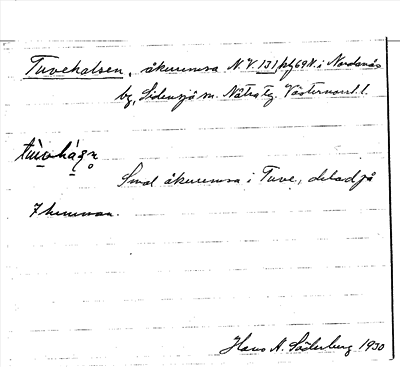 Tuvehalsen, åkerremsa N.V. 131, kfg 69N. i Nordanås
by, Sidensjö sn. Nätra tg. Västernorrl. l.
Smal åkerremsa i Tuve, delad på
7 hemman.
Hans A. Söderberg 1930